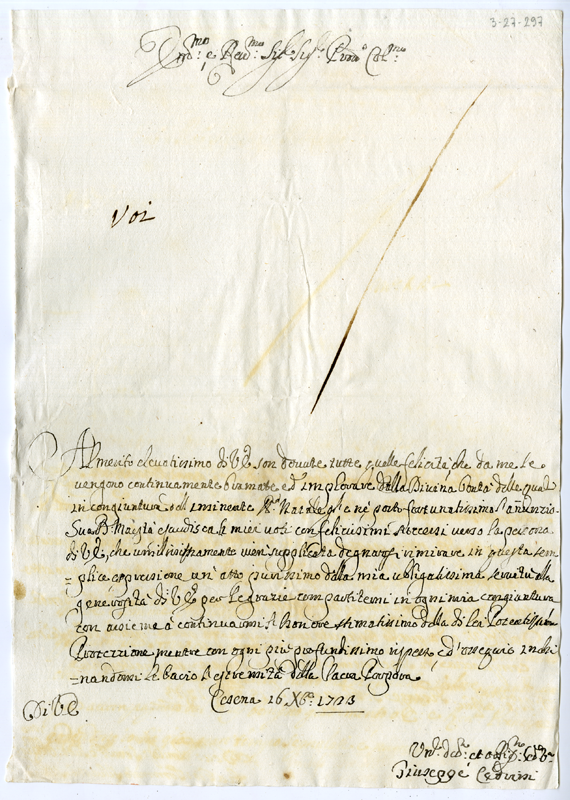 3-27-297
Em.mo e Rev.mo Sig.re Sig.re Pron.e Col.mo
Voi
Al merito elevatissimo di V.E. son dovute tutte quelle felicità che da me le
vengono continuamente bramate ed implorate dalla Divina bontà delle quali
in congiuntura dell'iminente S.mo Natale gle ne porto fortunatissimo l'annunzio
Sua D. Maestà esaudisca li miei voti con felicissimi successi verso la persona
di V.E., che umilissimamente vien supplicata degnarsi rimirare in questa sem
=plice espressione un'atto purissimo della mia obligatissima servitù alla
generosità di V.E. per le grazie compartitemi in ogni mia congiuntura
con assieme à continuarmi l'honore stimatissimo della di lei Potentissima
Protezzione mentre con ogni più profundissimo rispetto, ed'ossequio inchi
=nandomi le bacio l'estremità della Sacra Porpora
Cesena 16 Xbre 1713
Di V.E.
Um.o
Giuseppe